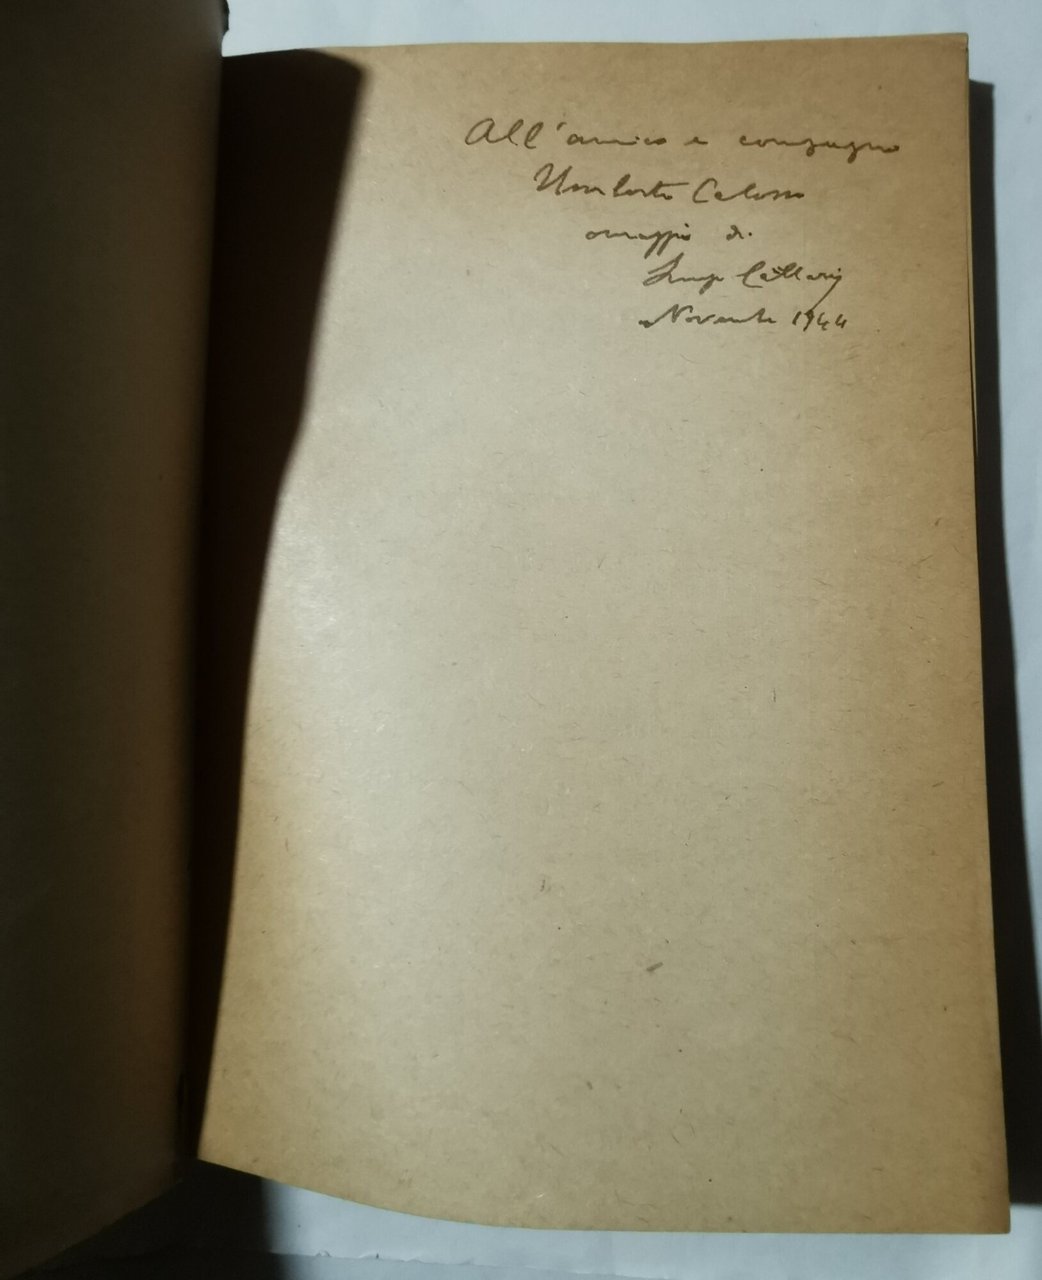 All'amico e compagno
Umberto Calosso
omaggio di
Luigi
Novembre 1944